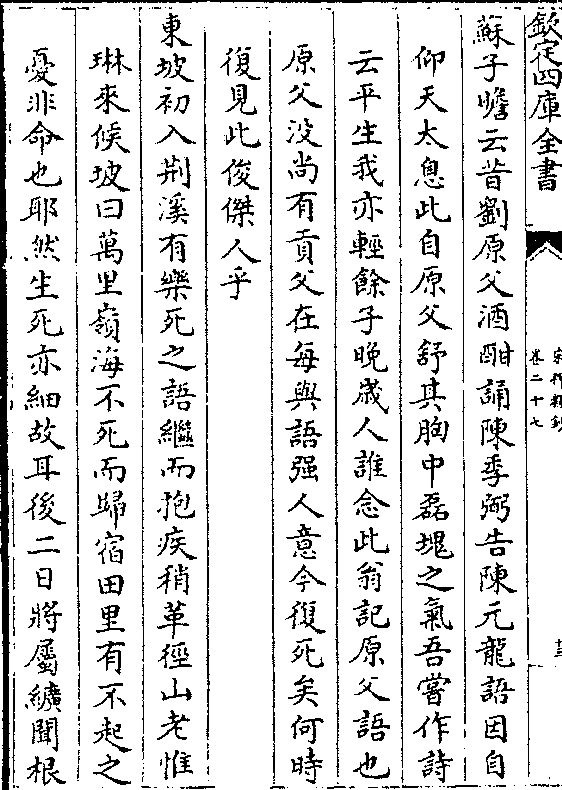 欽定四庫全書
宋稗類鈔
卷二十七
十三
蘇子瞻云昔劉原父酒酣誦陳季弼告陳元龍語因自
仰天太息此自原父舒其胸中磊塊之氣吾嘗作詩
云平生我亦輕餘子晚歲人誰念此翁記原父語也
原父沒尚有貢父在每與語强人意今復死矣何時
復見此俊傑人乎
東坡初入荆溪有樂死之語繼而抱疾稍革徑山老惟
琳來候坡曰萬里嶺海不死而歸宿田里有不起之
憂非命也耶然生死亦細故耳後二日將屬纊聞根